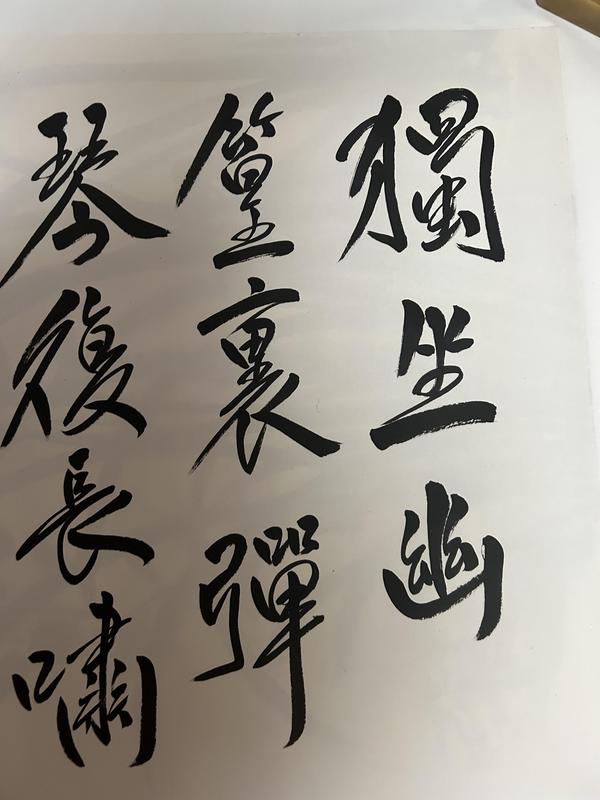 獨坐幽
篁裏彈
琴復長嘯